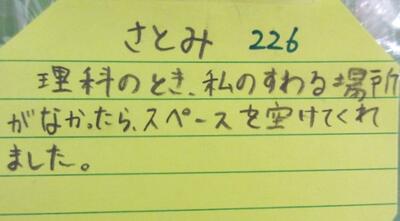 さとみ 226
理科のとき、私のすわる場所
がなかったら、スペースを空けてくれ
ました。